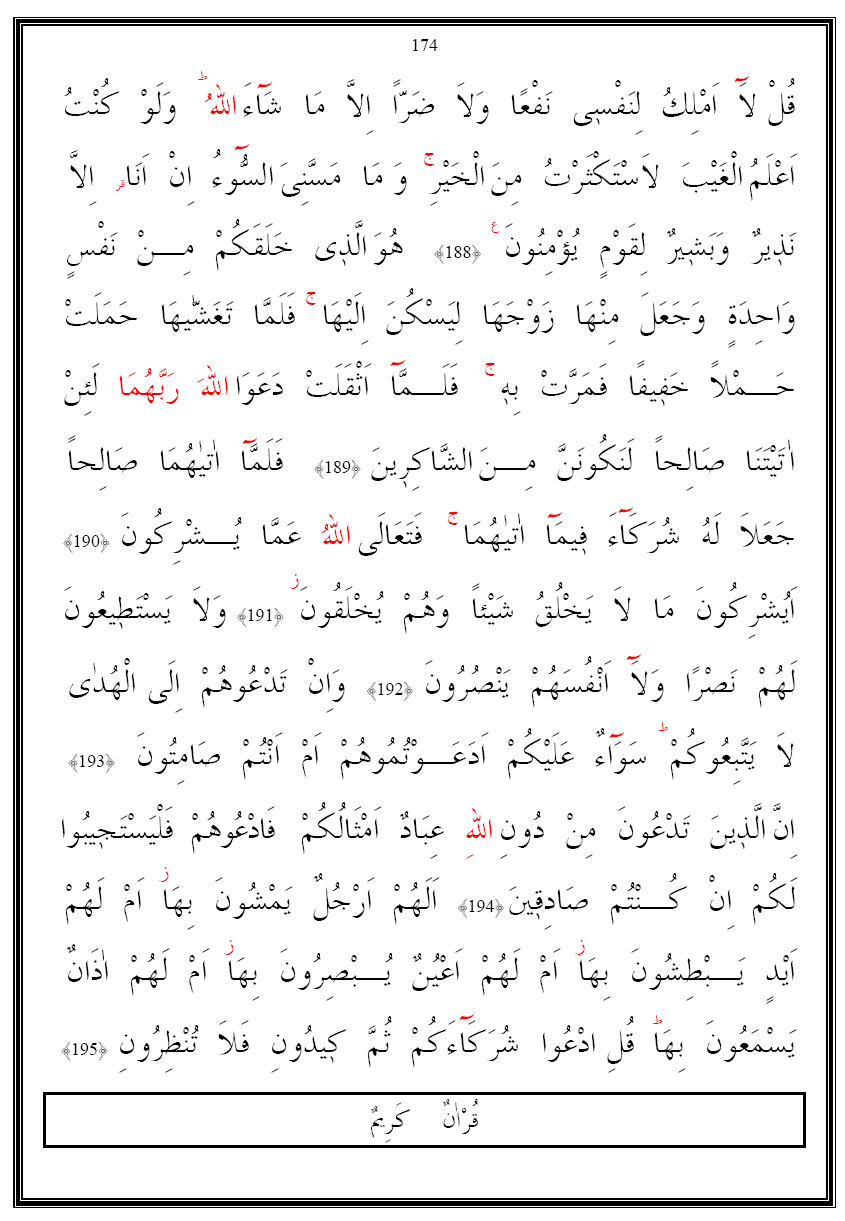 174
قُلْ لَٓا اَمْلِكُ لِنَفْسٖى نَفْعًا وَلَا ضَرّاً اِلَّا مَا شَٓاءَ اللّٰهُؕ وَلَوْ كُنْتُ
اَعْلَمُ الْغَيْبَ لَاسْتَكْثَرْتُ مِنَ الْخَيْرِۚ وَ مَا مَسَّنِىَ السُّٓوءُ اِنْ اَنَا۬ اِلَّا
نَذٖيرٌ وَبَشٖيرٌ لِقَوْمٍ يُؤْمِنُونَ ع ﴿188﴾ هُوَ الَّذٖى خَلَقَكُمْ مِـــنْ نَفْسٍ
وَاحِدَةٍ وَجَعَلَ مِنْهَا زَوْجَهَا لِيَسْكُنَ اِلَيْهَاۚ فَلَمَّا تَغَشّٰيهَا حَمَلَتْ
حَـــمْلاً خَفٖيفًا فَمَرَّتْ بِهٖۚ فَلَـــمَّٓا اَثْقَلَتْ دَعَوَا اللّٰهَ رَبَّهُمَا لَئِنْ
اٰتَيْتَنَا صَالِحاً لَنَكُونَنَّ مِـــنَ الشَّاكِرٖينَ ﴿189﴾ فَلَمَّٓا اٰتٰيهُمَا صَالِحاً
جَعَلَا لَهُ شُرَكَٓاءَ فٖيمَٓا اٰتٰيهُمَاۚ فَتَعَالَى اللّٰهُ عَمَّا يُـــشْرِكُونَ ﴿190﴾
اَيُشْرِكُونَ مَا لَا يَخْلُقُ شَيْئاً وَهُمْ يُخْلَقُونَ ز ﴿191﴾ وَلَا يَسْتَطٖيعُونَ
لَهُمْ نَصْرًا وَلَٓا اَنْفُسَهُمْ يَنْصُرُونَ ﴿192﴾ وَاِنْ تَدْعُوهُمْ اِلَى الْهُدٰى
لَا يَتَّبِعُوكُمْؕ سَوَٓاءٌ عَلَيْكُمْ اَدَعَـــوْتُمُوهُمْ اَمْ اَنْتُمْ صَامِتُونَ ﴿193﴾
اِنَّ الَّذٖينَ تَدْعُونَ مِنْ دُونِ اللّٰهِ عِبَادٌ اَمْثَالُكُمْ فَادْعُوهُمْ فَلْيَسْتَجٖيبُوا
لَكُمْ اِنْ كُـــنْتُمْ صَادِقٖينَ ﴿194﴾ اَلَهُمْ اَرْجُلٌ يَمْشُونَ بِهَا ز اَمْ لَهُمْ
اَيْدٍ يَـــبْطِشُونَ بِهَا ز اَمْ لَهُمْ اَعْيُنٌ يُـــبْصِرُونَ بِهَا ز اَمْ لَهُمْ اٰذَانٌ
يَسْمَعُونَ بِهَاؕ قُلِ ادْعُوا شُرَكَٓاءَكُمْ ثُمَّ كٖيدُونِ فَلَا تُنْظِرُونِ ﴿195﴾
قُرْاٰنٌ كَرٖيمٌ